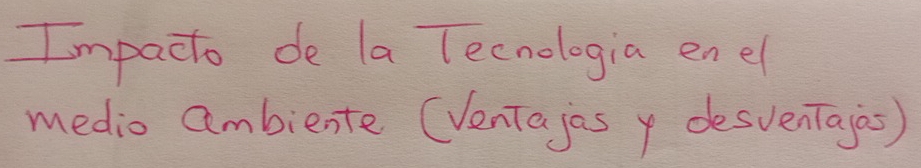 Impacto de la Tecnologia en el
medio ambiente (Ventajas y desventajas)